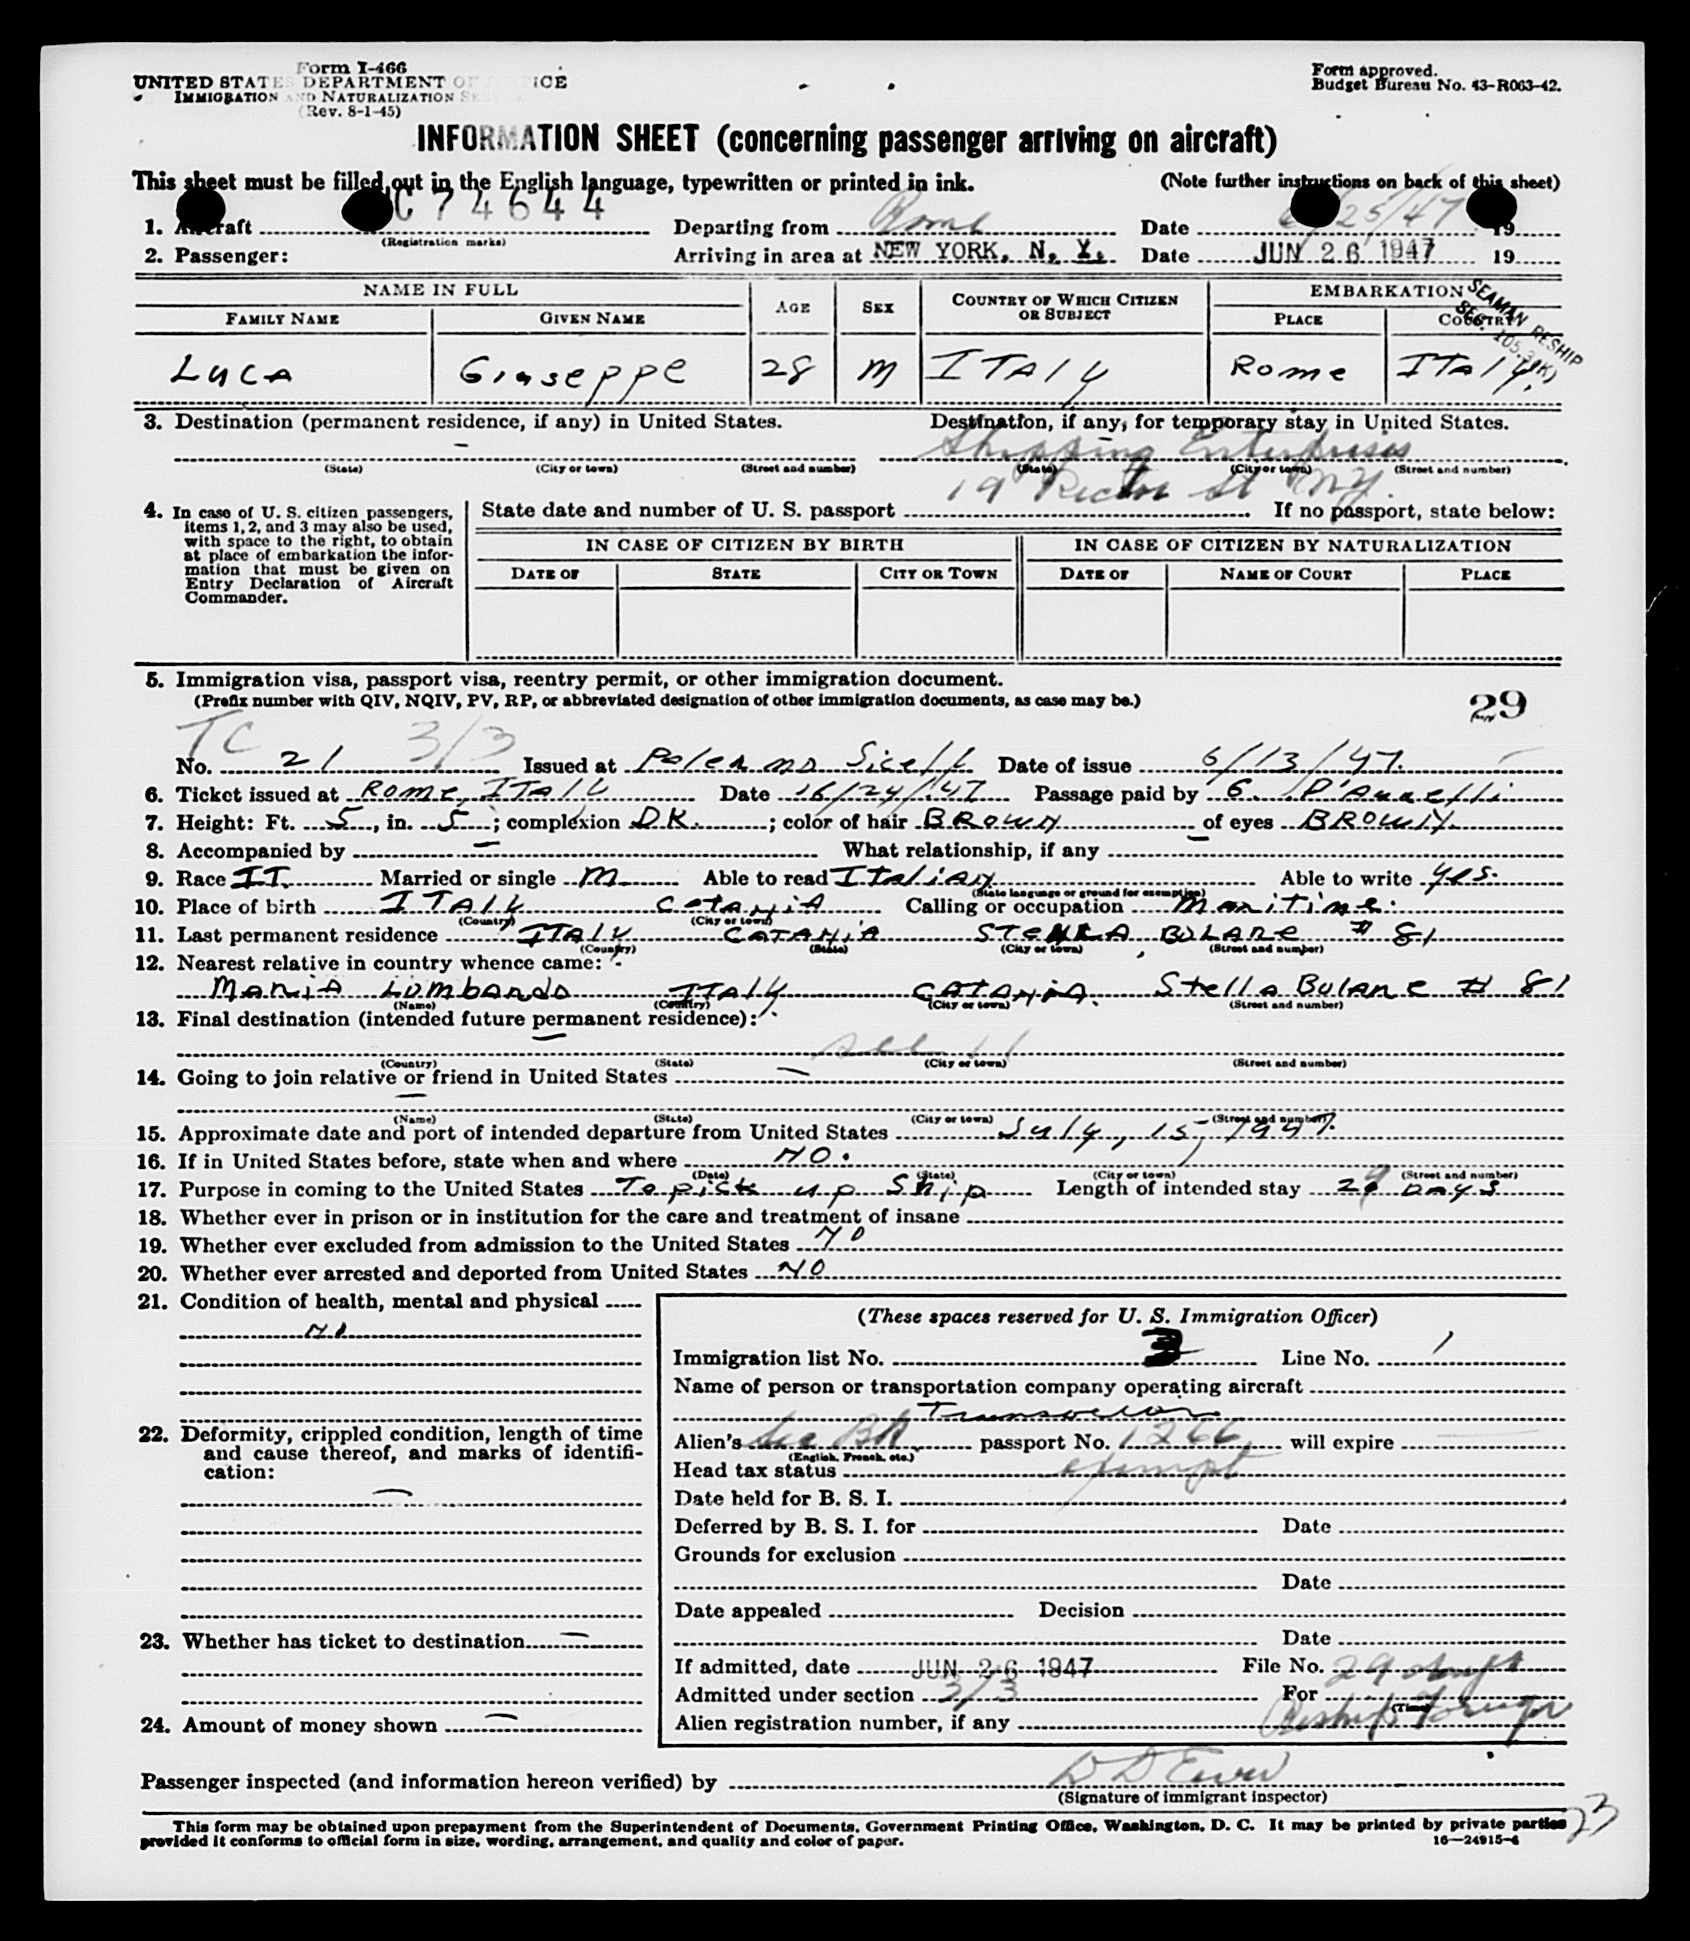 Form I-466
UNITED STATES DEPARTMENT OF JUSTICE
IMMIGRATION AND NATURALIZATION SERVICE
(Rev. 8-1-45)
Form approved.
Budget Bureau No. 43-R063-42.
INFORMATION SHEET (concerning passenger arriving on aircraft)
This sheet must be filled out in the English language, typewritten or printed in ink. (Note further instructions on back of this sheet)
1. Aircraft C 74644 (Registration marks) Departing from Rome Date 6/25/47 19
2. Passenger: Arriving in area at NEW YORK, N. Y. Date JUN 26 1947 19
NAME IN FULL AGE SEX COUNTRY OF WHICH CITIZEN OR SUBJECT EMBARKATION
FAMILY NAME GIVEN NAME PLACE COUNTRY
SEAMAN RESHIP
SEC. 105.3(K)
Luca Giuseppe 28 M ITALY Rome ITALY
3. Destination (permanent residence, if any) in United States. Destination, if any, for temporary stay in United States.
- Shipping Enterprises
(State) (City or town) (Street and number) (State) (City or town) (Street and number)
19 Rector St NY.
4. In case of U. S. citizen passengers, items 1, 2, and 3 may also be used, with space to the right, to obtain at place of embarkation the information that must be given on Entry Declaration of Aircraft Commander.
State date and number of U. S. passport If no passport, state below:
IN CASE OF CITIZEN BY BIRTH IN CASE OF CITIZEN BY NATURALIZATION
DATE OF STATE CITY OR TOWN DATE OF NAME OF COURT PLACE
5. Immigration visa, passport visa, reentry permit, or other immigration document.
(Prefix number with QIV, NQIV, PV, RP, or abbreviated designation of other immigration documents, as case may be.)
29
TC 3/3
No. 21 Issued at Palermo Sicily Date of issue 6/13/47.
6. Ticket issued at Rome, ITALY Date 16/24/47 Passage paid by G.
7. Height: Ft. 5, in. 5; complexion DK.; color of hair BROWN of eyes BROWN.
8. Accompanied by - What relationship, if any -
9. Race IT. Married or single M Able to read Italian Able to write yes.
(State language or ground for exemption)
10. Place of birth ITALY CATANIA Calling or occupation Maritime.
(Country) (City or town)
11. Last permanent residence ITALY CATANIA STELLA BULARE # 81
(Country) (State) (City or town) (Street and number)
12. Nearest relative in country whence came:
Maria Lombardo ITALY CATANIA. Stella Bulare # 81
(Name) (Country) (City or town) (Street and number)
13. Final destination (intended future permanent residence):
- see 11
(Country) (State) (City or town) (Street and number)
14. Going to join relative or friend in United States -
-
(Name) (State) (City or town) (Street and number)
15. Approximate date and port of intended departure from United States July, 15, 1947.
16. If in United States before, state when and where NO.
(Date) (State) (City or town) (Street and number)
17. Purpose in coming to the United States To pick up Ship Length of intended stay 29 DAYS
18. Whether ever in prison or in institution for the care and treatment of insane
19. Whether ever excluded from admission to the United States NO
20. Whether ever arrested and deported from United States NO
21. Condition of health, mental and physical
NO
22. Deformity, crippled condition, length of time and cause thereof, and marks of identification:
-
23. Whether has ticket to destination -
24. Amount of money shown -
(These spaces reserved for U. S. Immigration Officer)
Immigration list No. 3 Line No. 1
Name of person or transportation company operating aircraft
Alien's Sea Bk passport No. 1266 will expire
(English, French, etc.)
Head tax status exempt
Date held for B. S. I.
Deferred by B. S. I. for Date
Grounds for exclusion
Date
Date appealed Decision
Date
If admitted, date JUN 26 1947 File No. 29 days
Admitted under section 3/3 For Reship Foreign
(Time)
Alien registration number, if any
Passenger inspected (and information hereon verified) by
(Signature of immigrant inspector)
This form may be obtained upon prepayment from the Superintendent of Documents, Government Printing Office, Washington, D. C. It may be printed by private parties
provided it conforms to official form in size, wording, arrangement, and quality and color of paper. 16—24915-4
23